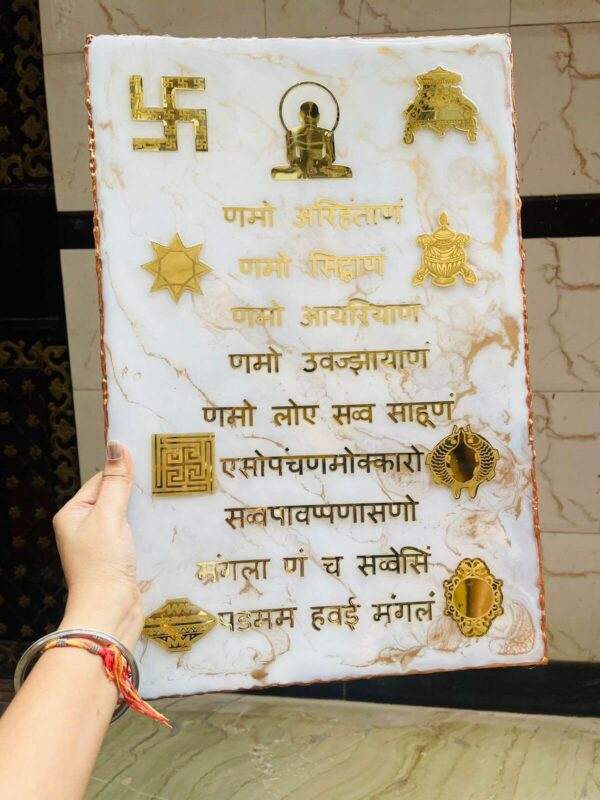 णमो अरिहंताणं
णमो सिद्धाणं
णमो आयरियाणं
णमो उवज्झायाणं
णमो लोए सव्व साहूणं
एसोपंचणमोक्कारो
सव्वपावप्पणासणो
मंगला णं च सव्वेसिं
पडमम हवई मंगलं